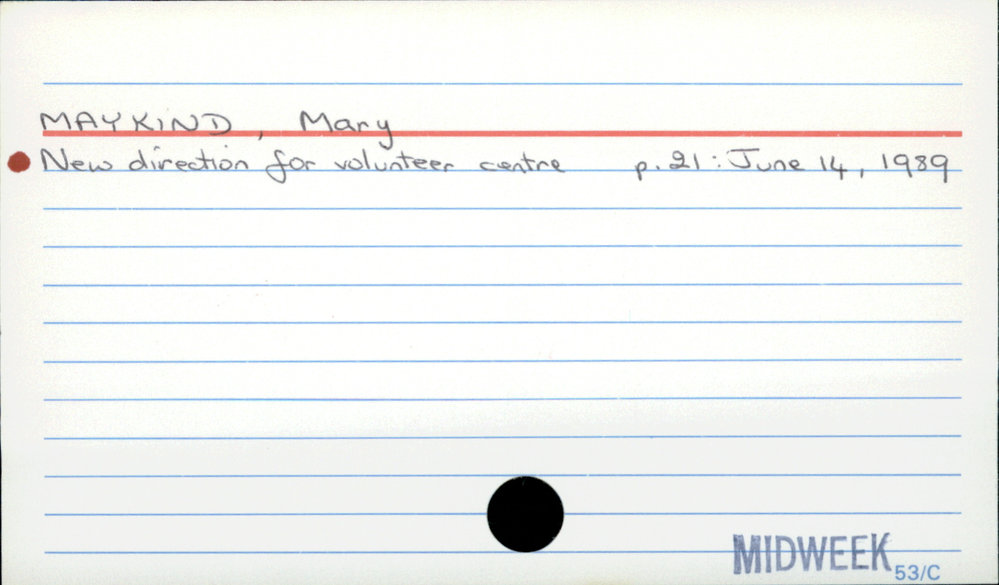 MAYKIND, Mary
New direction for volunteer centre p. 21 : June 14, 1989
MIDWEEK
53/C